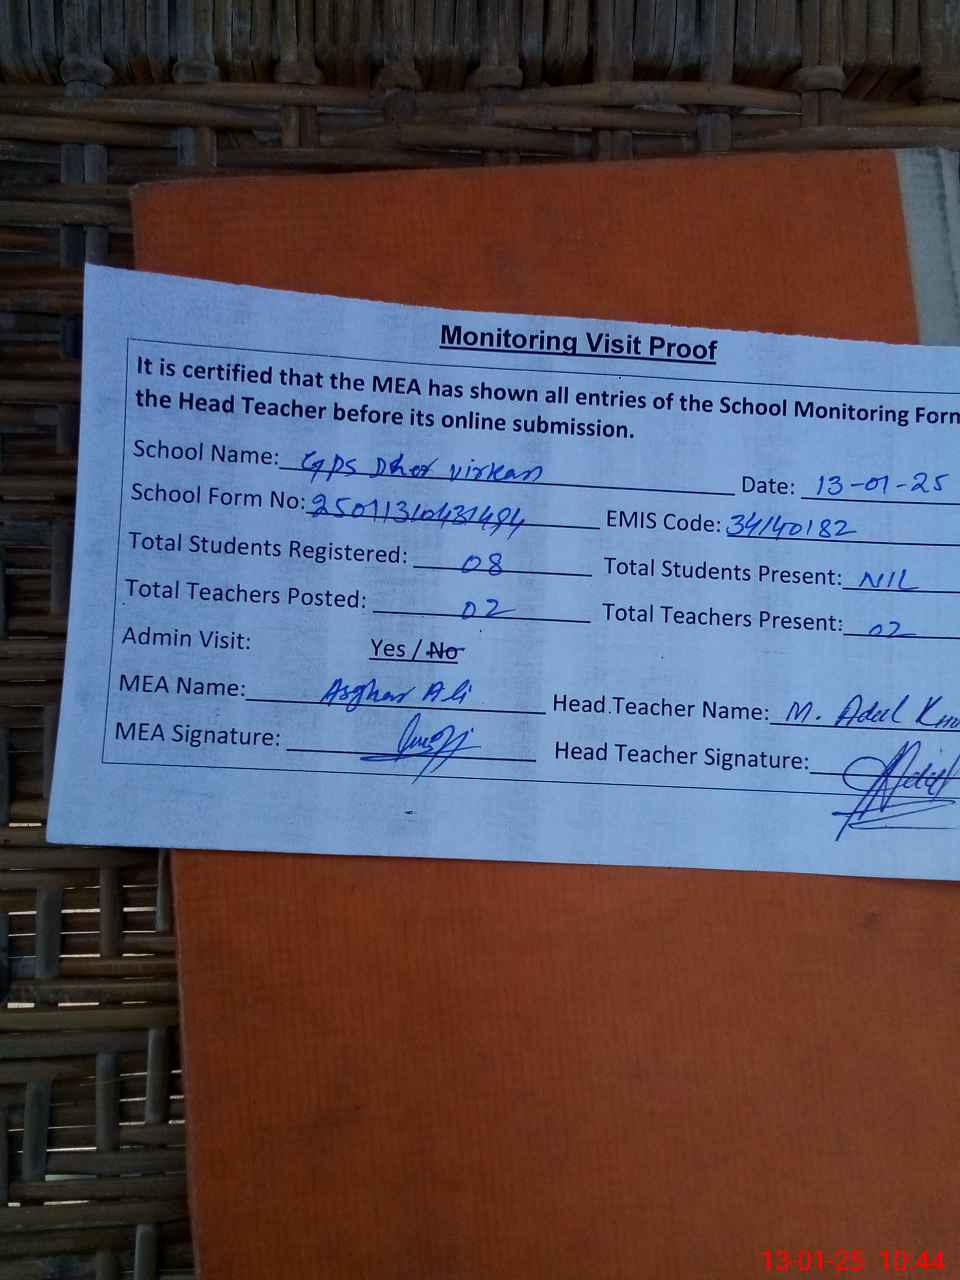 Monitoring Visit Proof
It is certified that the MEA has shown all entries of the School Monitoring Form
the Head Teacher before its online submission.
School Name: GPS Dhor Virkan Date: 13-01-25
School Form No: EMIS Code: 34140182
Total Students Registered: 08 Total Students Present: NIL
Total Teachers Posted: 02 Total Teachers Present: 02
Admin Visit: Yes / No
MEA Name: Asghar Ali Head Teacher Name: M. Adeel
MEA Signature: Head Teacher Signature: Adeel
13-01-25 10:44